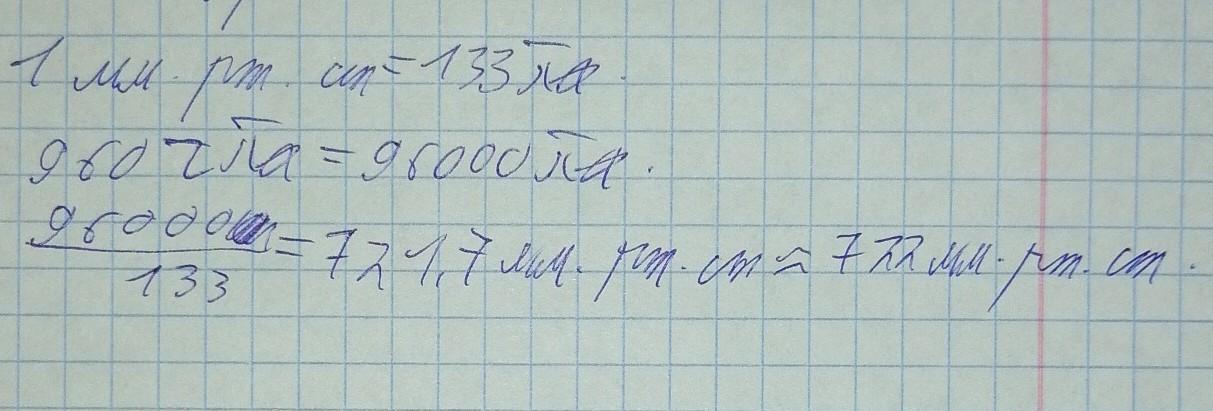 1 мм. рт. ст = 133 Па.
960 гПа = 96000 Па.
96000
133 = 721,7 мм. рт. ст ≈ 722 мм. рт. ст.